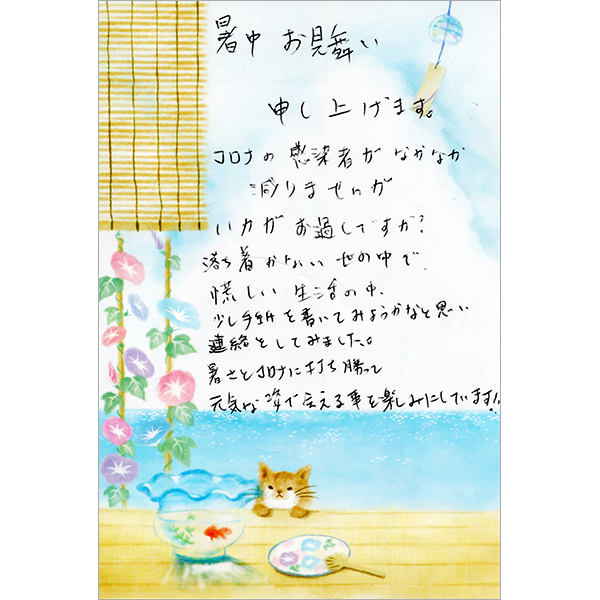 暑中お見舞い
申し上げます。
コロナの感染者がなかなか
減りませんが
いかがお過しですか?
落ち着かない世の中で
慌しい生活の中、
少し手紙を書いてみようかなと思い
連絡をしてみました。
暑さとコロナに打ち勝って
元気な姿で会える事を楽しみにしています!!